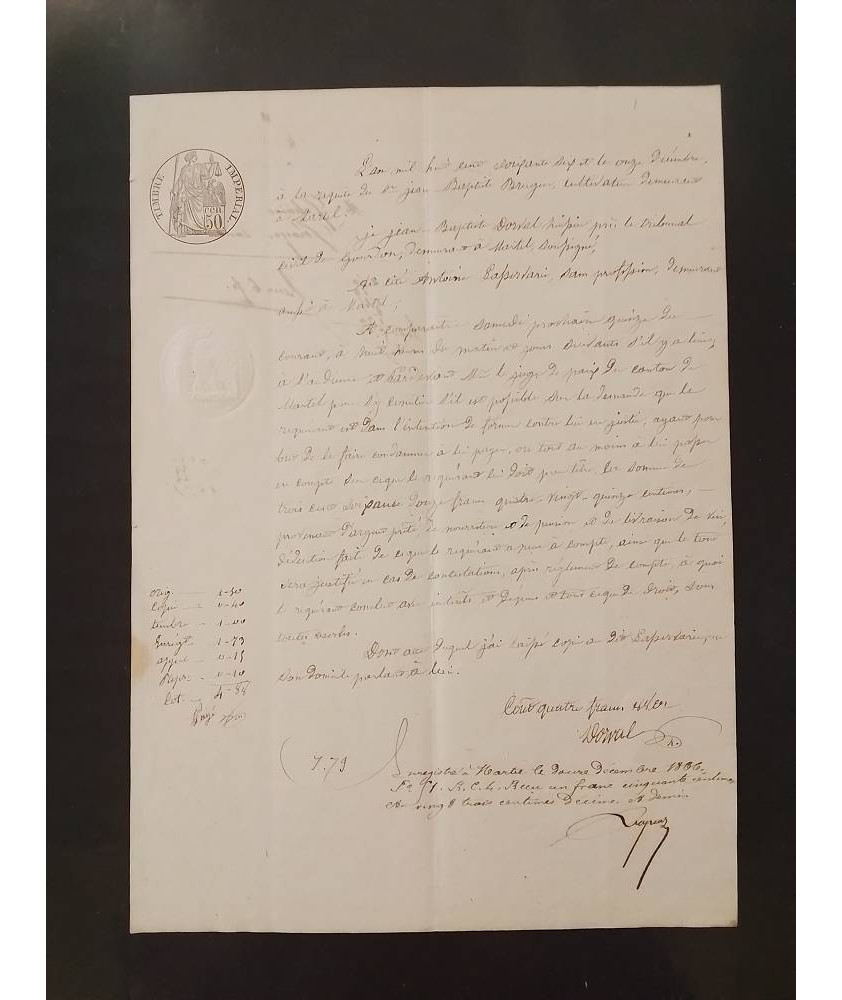 TIMBRE IMPERIAL
50 CEN
L'an mil huit cent soixante six et le onze Décembre,
à la requete du Sr jean Baptiste cultivateur demeurant
à Martel.
je jean Baptiste Dorval huissier près le tribunal
civil de Gourdon, demeurant à Martel, soussigné,
cité Antoine Lasservarie, sans profession, demeurant
aussi à Martel,
A comparaitre samedi prochain quinze du
courant, à huit heures du matin et jours suivants s'il y a lieu,
à l'audience et pardevant Mr le juge de paix du canton de
Martel pour s'y concilier s'il est possible sur la demande que le
requérant est dans l'intention de former contre lui en justice, ayant pour
but de le faire condamner à lui payer, ou tout au moins à lui passer
en compte sur ce que le requérant lui doit peut être, la somme de
trois cent soixante douze francs quatre vingt-quinze centimes,
provenant d'argent prêté de nourriture et de pension et de livraison de vin,
déduction faite de ce que le requérant a reçu à compte, ainsi que le tout
sera justifié en cas de contestations, après reglement de compte, à quoi
le requérant conclut avec intérêts et dépens et tout ce que de droit, sous
toutes reserves.
Dont acte duquel j'ai laissé copie a dit Lasservarie, en
son domicile parlant à lui.
orig. 1-50
Copie 0-40
timbre 1-00
Enregt 1-73
appel 0-15
Reper. 0-10
Cot. 4-88
Cout quatre francs 88 c
Dorval
(7.79
Enregistré à Martel le douze Décembre 1866.
Fo 51. R. C. 4. Reçu un franc cinquante centimes
et vingt trois centimes Decime et demi.